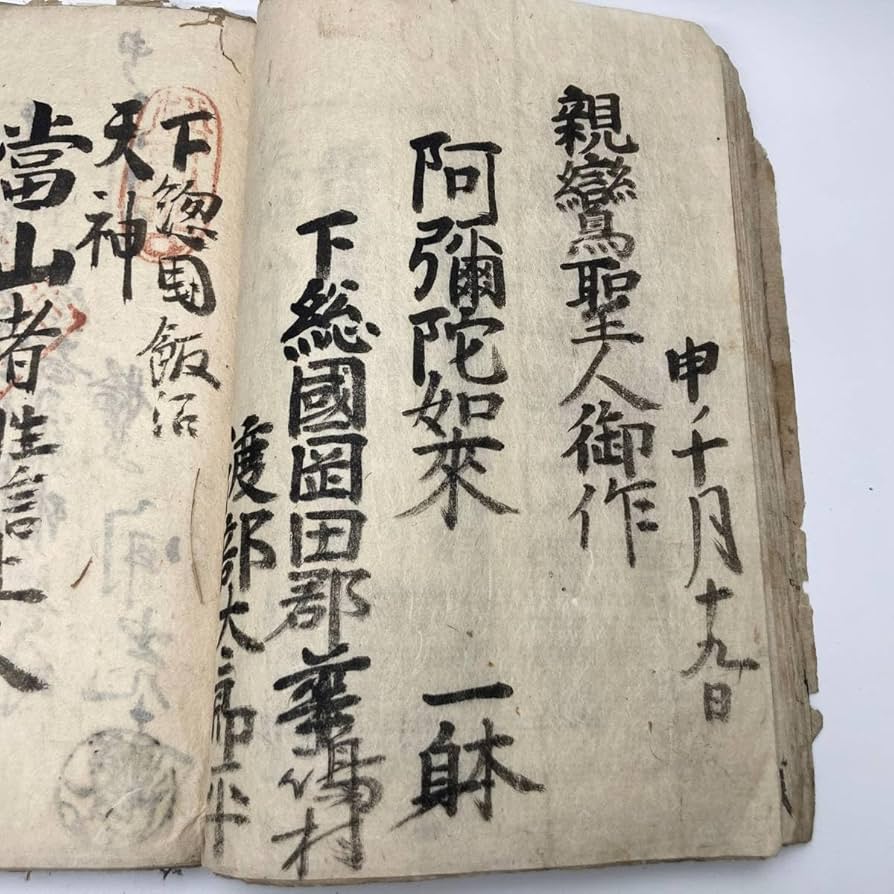 申ノ十月十九日
親鸞聖人御作
阿彌陀如來 一躰
下総國岡田郡蕐嶋村
渡部太郎平
下総国飯沼
天神
當山者性信上人